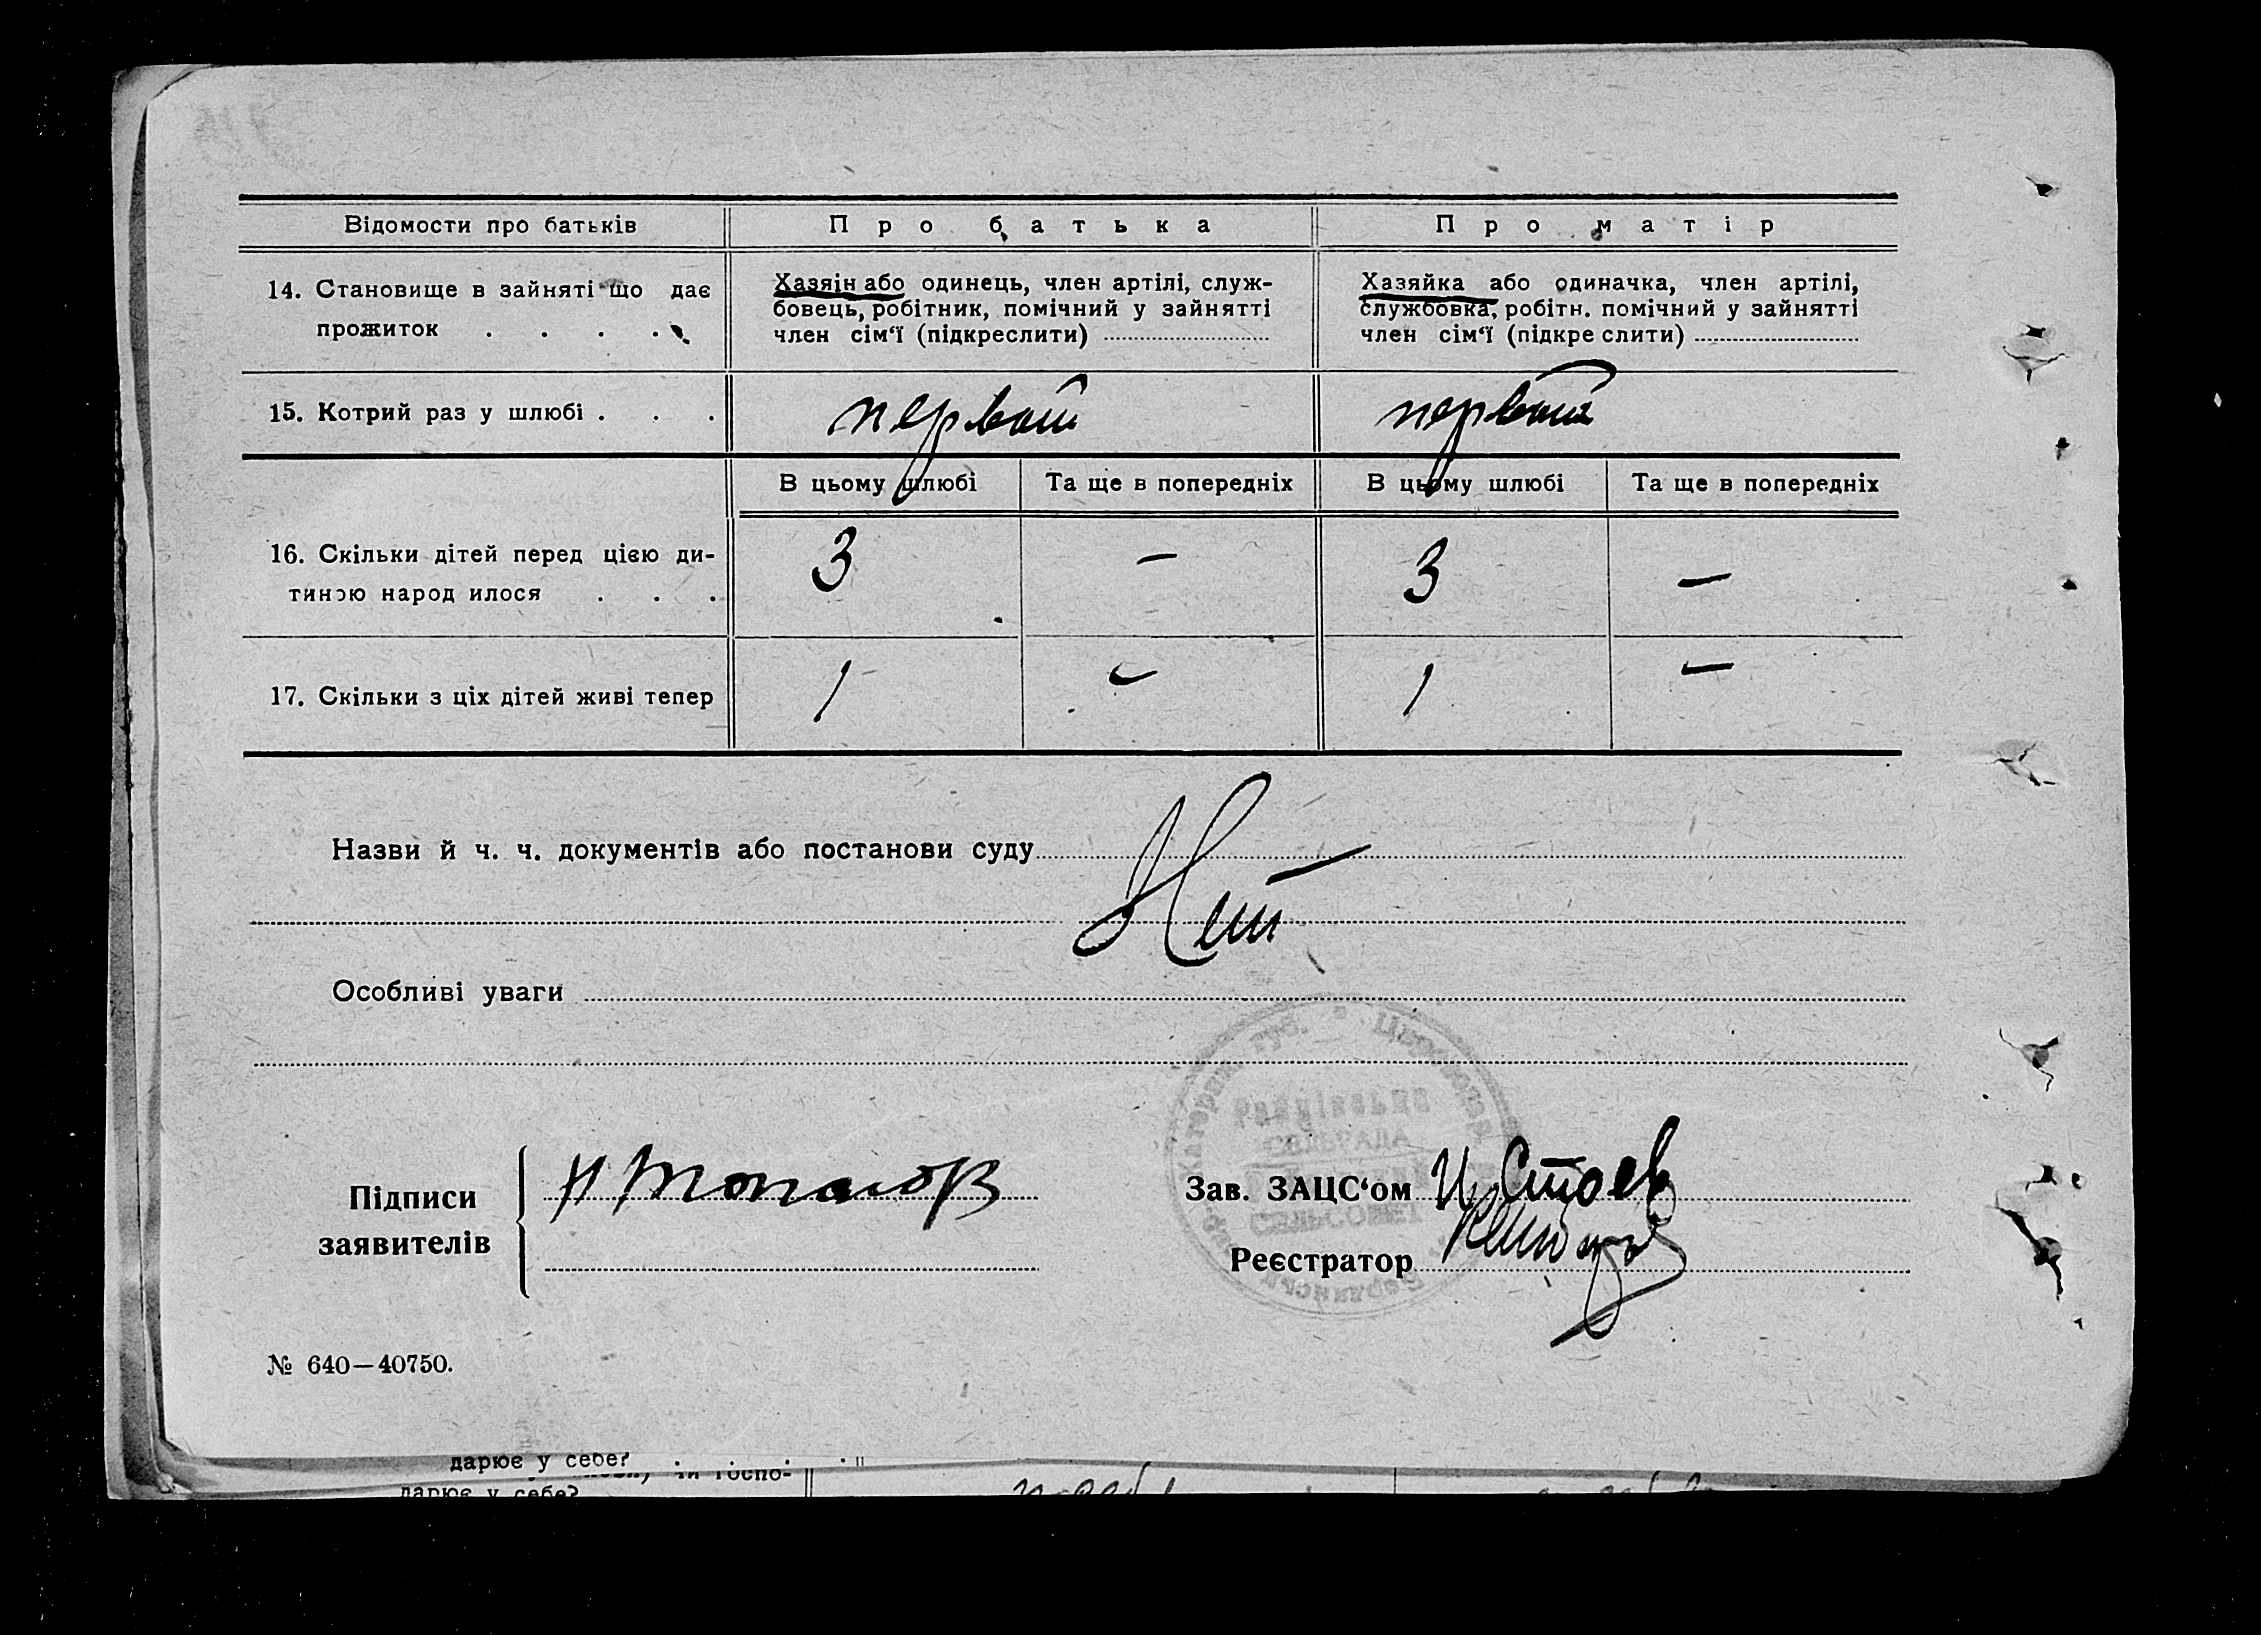 Відомости про батьків
Про батька
Про матір
14. Становище в зайняті що дає
прожиток . . . .
Хазяїн або одинець, член артілі, служ-
бовець, робітник, помічний у зайнятті
член сім‘ї (підкреслити)
Хазяйка або одиначка, член артілі,
службовка, робітн. помічний у зайнятті
член сім‘ї (підкре слити)
15. Котрий раз у шлюбі . . .
первой
первой
В цьому шлюбі
Та ще в попередніх
В цьому шлюбі
Та ще в попередніх
16. Скільки дітей перед цією ди-
тиною народ илося . . .
3
–
3
–
17. Скільки з ціх дітей живі тепер
1
–
1
–
Назви й ч. ч. документів або постанови суду
Нет
Особливі уваги
Катерин. губ. Царевод
СЕЛЬРАДА
СЕЛЬСОВЕТ
Бердянськ
Підписи
заявителів
Н Топалов
Зав. ЗАЦС‘ом
И. Стоев
Реєстратор
№ 640—40750.
дарює у себе? . . . .
чи госпо-
дарює у себе?